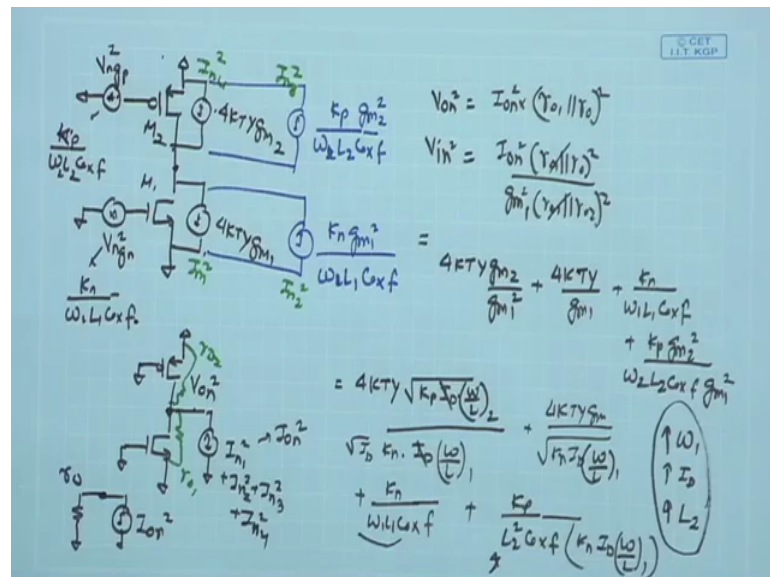 © CET
I.I.T. KGP
Vngp²
In4²
In3²
4KTγgm2
Kp gm2² / W2L2Coxf
Kp / W2L2Coxf
M2
M1
Vngn²
4KTγgm1
In1²
Kn gm1² / W2L1Coxf
In2²
Kn / W1L1Coxf.
Von² = Ion² × (ro1 || ro)²
Vin² = Ion² (ro1 || ro)² / gm1² (ro1 || ro2)²
= 4KTγgm2 / gm1² + 4KTγ / gm1 + Kn / W1L1Coxf
+ Kp gm2² / W2L2Coxf gm1²
ro2
Von²
ro1
In1² → Ion²
+ In2² + In3²
+ In4²
ro
Ion²
= 4KTγ √Kp ID (W/L)2 / √ID Kn. ID (W/L)1 + 4KTγgm / √Kn ID (W/L)1
+ Kn / W1L1Coxf + Kp / L2² Coxf (Kn ID (W/L)1)
↑ W1
↑ ID
↑ L2